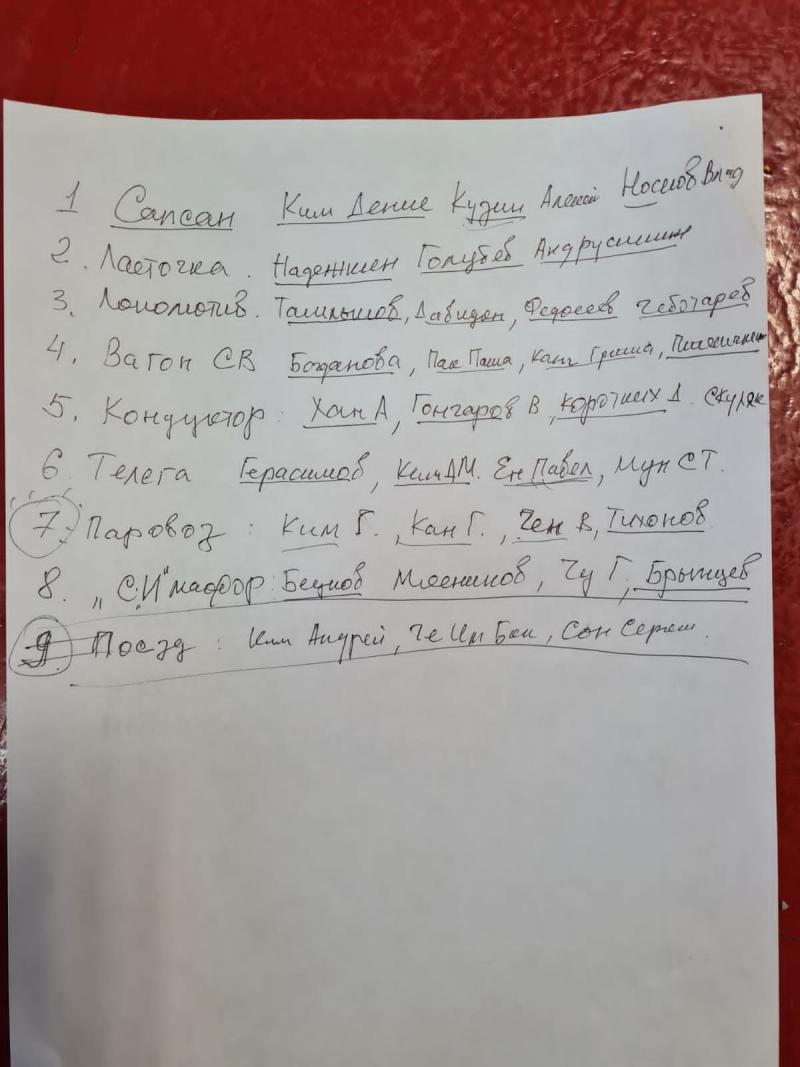 1 Сапсан Ким Денис Кузин Алексей Носков Влад
2. Ласточка. Надежкин Голубев Андрусишин
3. Локомотив. Талышов, Давидон, Федосеев Чеботарев
4. Вагон СВ Богданова, Пак Паша, Кан Гриша,
5. Кондуктор: Хан А, Гончаров В, Коротких Д. Скуляк
6 Телега Герасимов, Ким ДМ. Ен Павел, Мун СТ.
7. Паровоз: Ким Г., Кан Г., Чен В, Тихонов
8. "С.И" мафор: Мясников, Чу Г, Брынцев
9 Поезд: Ким Андрей, Че Ин Бом, Сон Сергей.